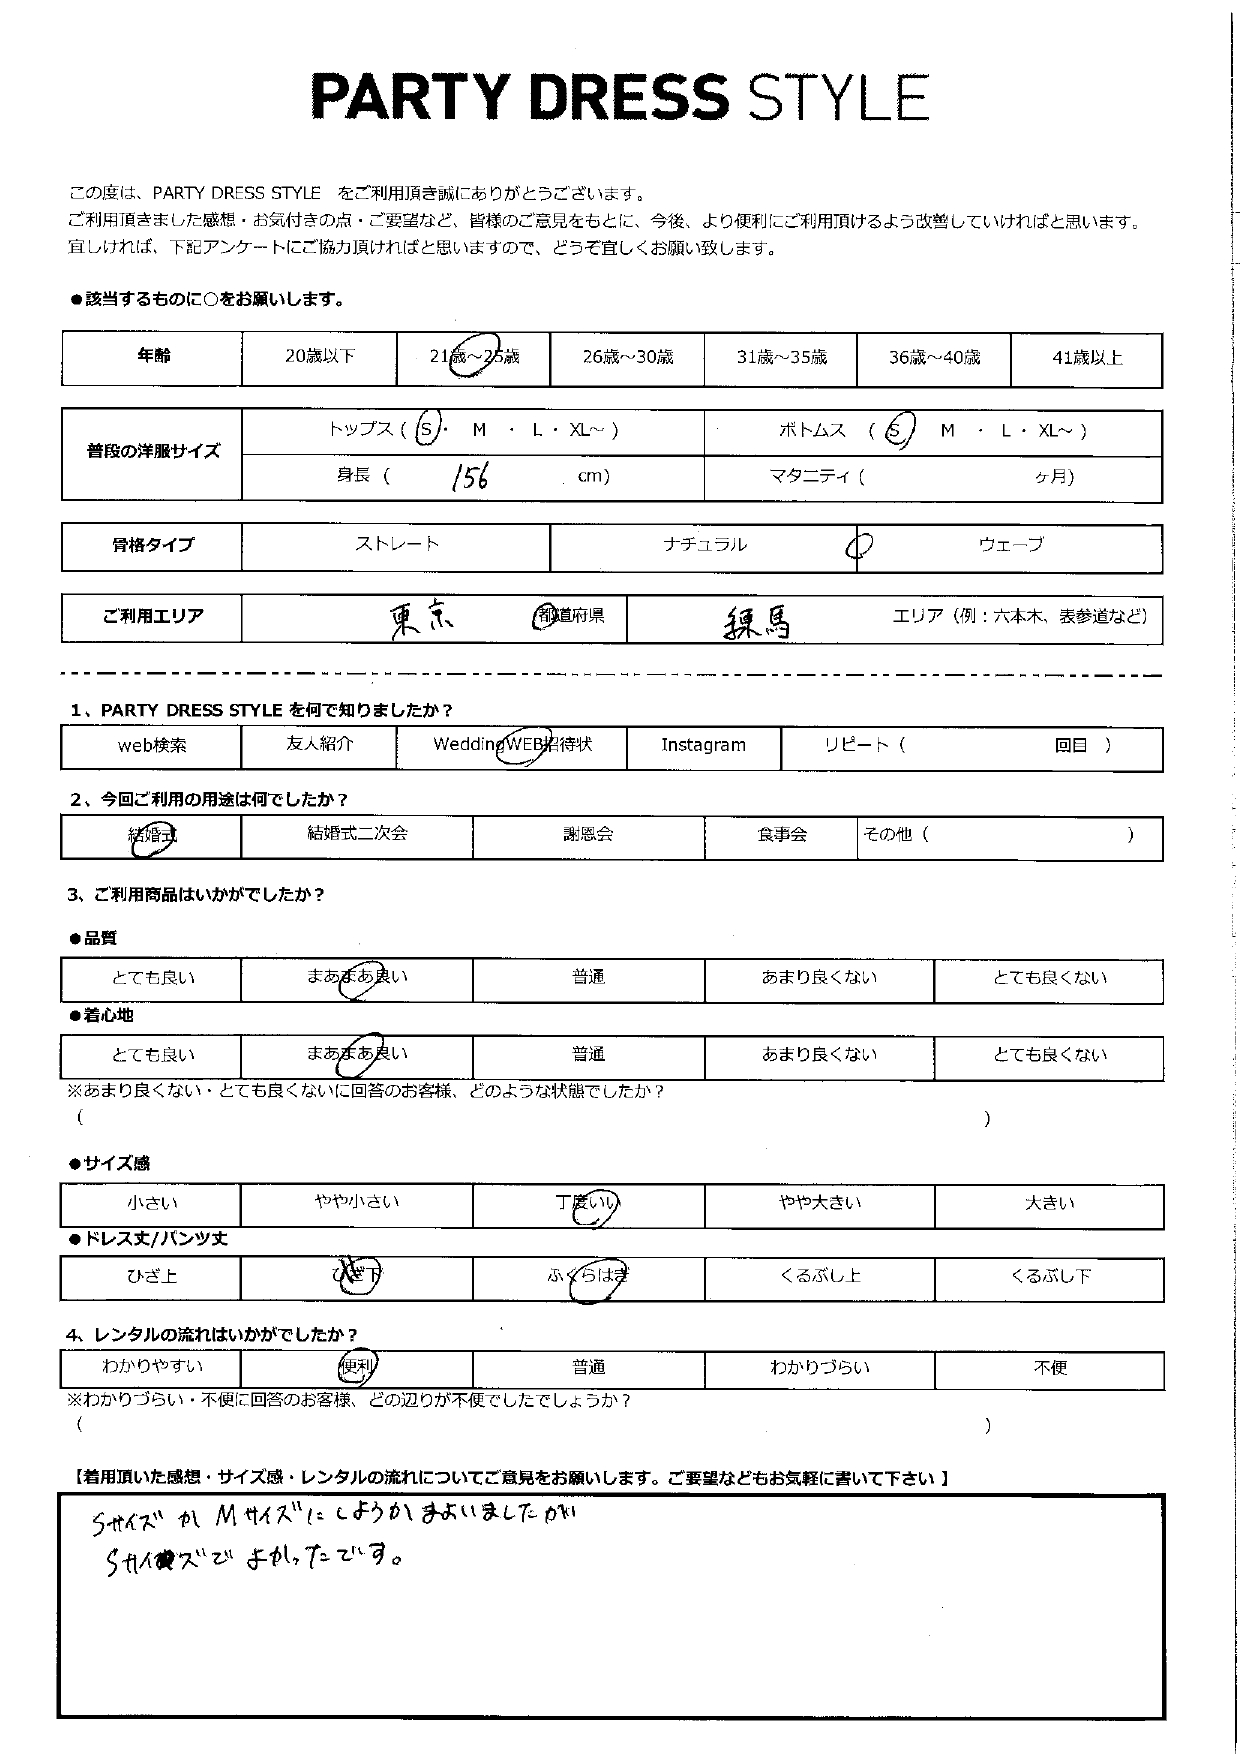 PARTY DRESS STYLE
この度は、PARTY DRESS STYLE をご利用頂き誠にありがとうございます。
ご利用頂きました感想・お気付きの点・ご要望など、皆様のご意見をもとに、今後、より便利にご利用頂けるよう改善していければと思います。
宜しければ、下記アンケートにご協力頂ければと思いますので、どうぞ宜しくお願い致します。
●該当するものに○をお願いします。
年齢 20歳以下 21歳～25歳 26歳～30歳 31歳～35歳 36歳～40歳 41歳以上
普段の洋服サイズ
トップス ( S ・ M ・ L ・ XL～ ) ボトムス ( S M ・ L ・ XL～ )
身長 ( 156 cm) マタニティ ( ヶ月)
骨格タイプ ストレート ナチュラル ウェーブ
ご利用エリア 東京 都道府県 練馬 エリア（例：六本木、表参道など）
1、PARTY DRESS STYLE を何で知りましたか？
web検索 友人紹介 WeddingWEB招待状 Instagram リピート（ 回目 ）
2、今回ご利用の用途は何でしたか？
結婚式 結婚式二次会 謝恩会 食事会 その他（ ）
3、ご利用商品はいかがでしたか？
●品質
とても良い まあまあ良い 普通 あまり良くない とても良くない
●着心地
とても良い まあまあ良い 普通 あまり良くない とても良くない
※あまり良くない・とても良くないに回答のお客様、どのような状態でしたか？
（ ）
●サイズ感
小さい やや小さい 丁度いい やや大きい 大きい
●ドレス丈/パンツ丈
ひざ上 ひざ下 ふくらはぎ くるぶし上 くるぶし下
4、レンタルの流れはいかがでしたか？
わかりやすい 便利 普通 わかりづらい 不便
※わかりづらい・不便に回答のお客様、どの辺りが不便でしたでしょうか？
（ ）
【着用頂いた感想・サイズ感・レンタルの流れについてご意見をお願いします。ご要望などもお気軽に書いて下さい 】
Sサイズか Mサイズにしようかまよいましたが
Sサイズで よかったです。